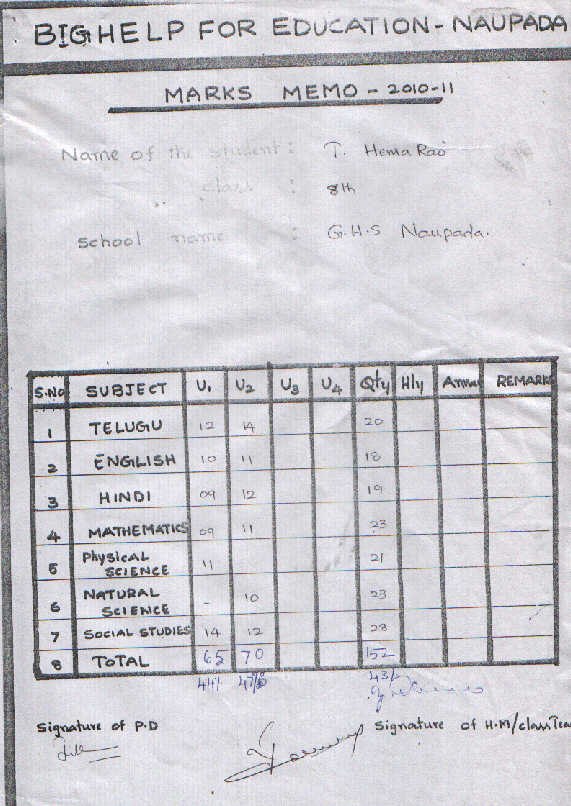 BIGHELP FOR EDUCATION - NAUPADA
MARKS MEMO - 2010-11
Name of the student : T. Hema Rao
class : 8th
School name : G.H.S Naupada.
S.No SUBJECT U1 U2 U3 U4 Qty Hly Annu REMARK
1 TELUGU 12 14 20
2 ENGILISH 10 11 18
3 HINDI 09 12 19
4 MATHEMATICS 09 11 23
5 Physical SCIENCE 11 21
6 NATURAL SCIENCE - 10 23
7 SOCIAL STUDIES 14 12 28
8 TOTAL 65 70 152
Signature of P.D Signature of H.M/class Tea